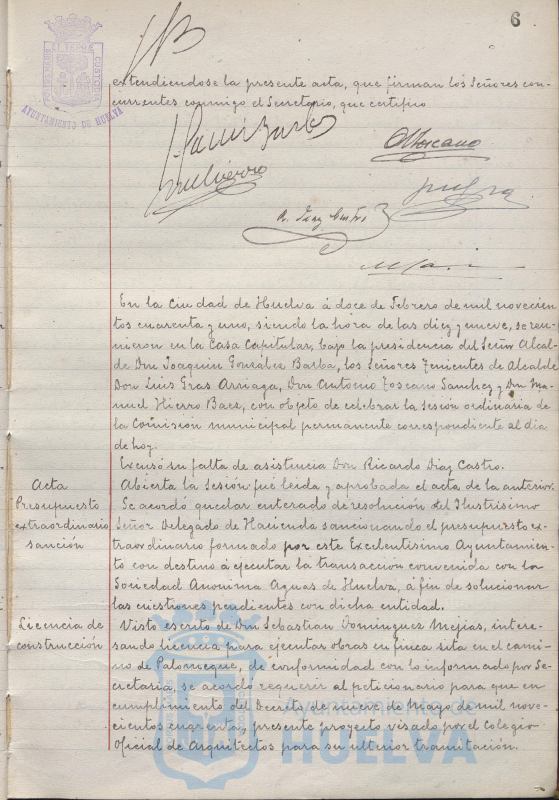 6
AYUNTAMIENTO DE HUELVA
extendiendose la presente acta, que firman los Señores con-
currentes conmigo el Secretario, que certifico
En la Ciudad de Huelva á doce de Febrero de mil novecien-
tos cuarenta y uno, siendo la hora de las diez y nueve, se reu-
nieron en la Casa Capitular, bajo la presidencia del Señor Alcal-
de Don Joaquin González Barba, los Señores Tenientes de Alcalde
Don Luis Gras Arriaga, Don Antonio Toscano Sanchez y Don Ma-
nuel Hierro Baes, con objeto de celebrar la sesión ordinaria de
la Comisión municipal permanente correspondiente al dia
de hoy.
Excusó su falta de asistencia Don Ricardo Diaz Castro.
Acta
Abierta la sesión fué leida y aprobada el acta de la anterior.
Presupuesto
extraordinario
sanción
Se acordó quedar enterado de resolución del Ilustrisimo
Señor Delegado de Hacienda sancionando el presupuesto ex-
traordinario formado por este Excelentisimo Ayuntamien-
to con destino á ejecutar la transaccion convenida con la
Sociedad Anonima Aguas de Huelva, á fin de solucionar
las cuestiones pendientes con dicha entidad.
Licencia de
construcción
Visto escrito de Don Sebastian Dominguez Mejias, intere-
sando licencia para ejecutar obras en finca sita en el cami-
no de Palomeque, de conformidad con lo informado por Se-
cretaria, se acordó requerir al peticionario para que en
cumplimiento del Decreto de nueve de Mayo de mil nove-
cientos cuarenta, presente proyecto visado por el Colegio
Oficial de Arquitectos para su ulterior tramitación.
Ayuntamiento de
HUELVA